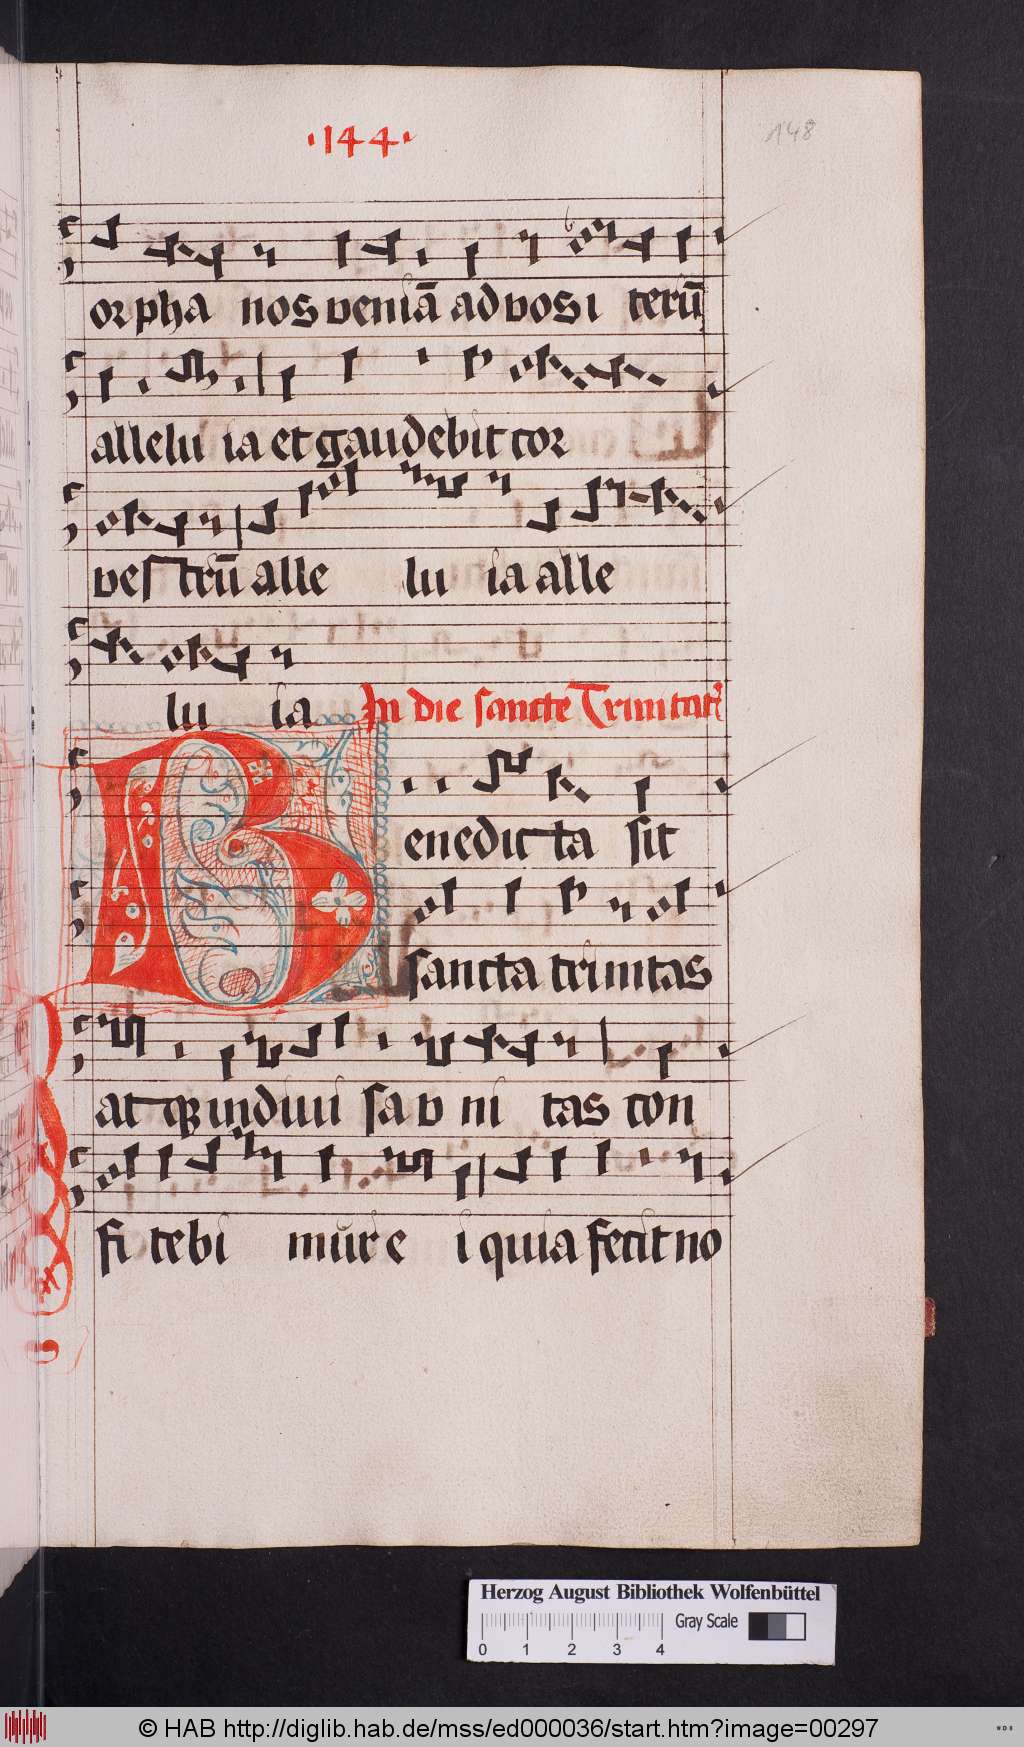 ·144·
148
orpha nos veniā ad vos i terū
allelu ia et gaudebit cor
vestrū alle lu ia alle
lu ia In die sancte Trinitat᷒
Benedicta sit
sancta trinitas
atqꝫ indiui sa v ni tas con
fi tebi mur e i quia fecit no
Herzog August Bibliothek Wolfenbüttel
Gray Scale
0 1 2 3 4
© HAB http://diglib.hab.de/mss/ed000036/start.htm?image=00297